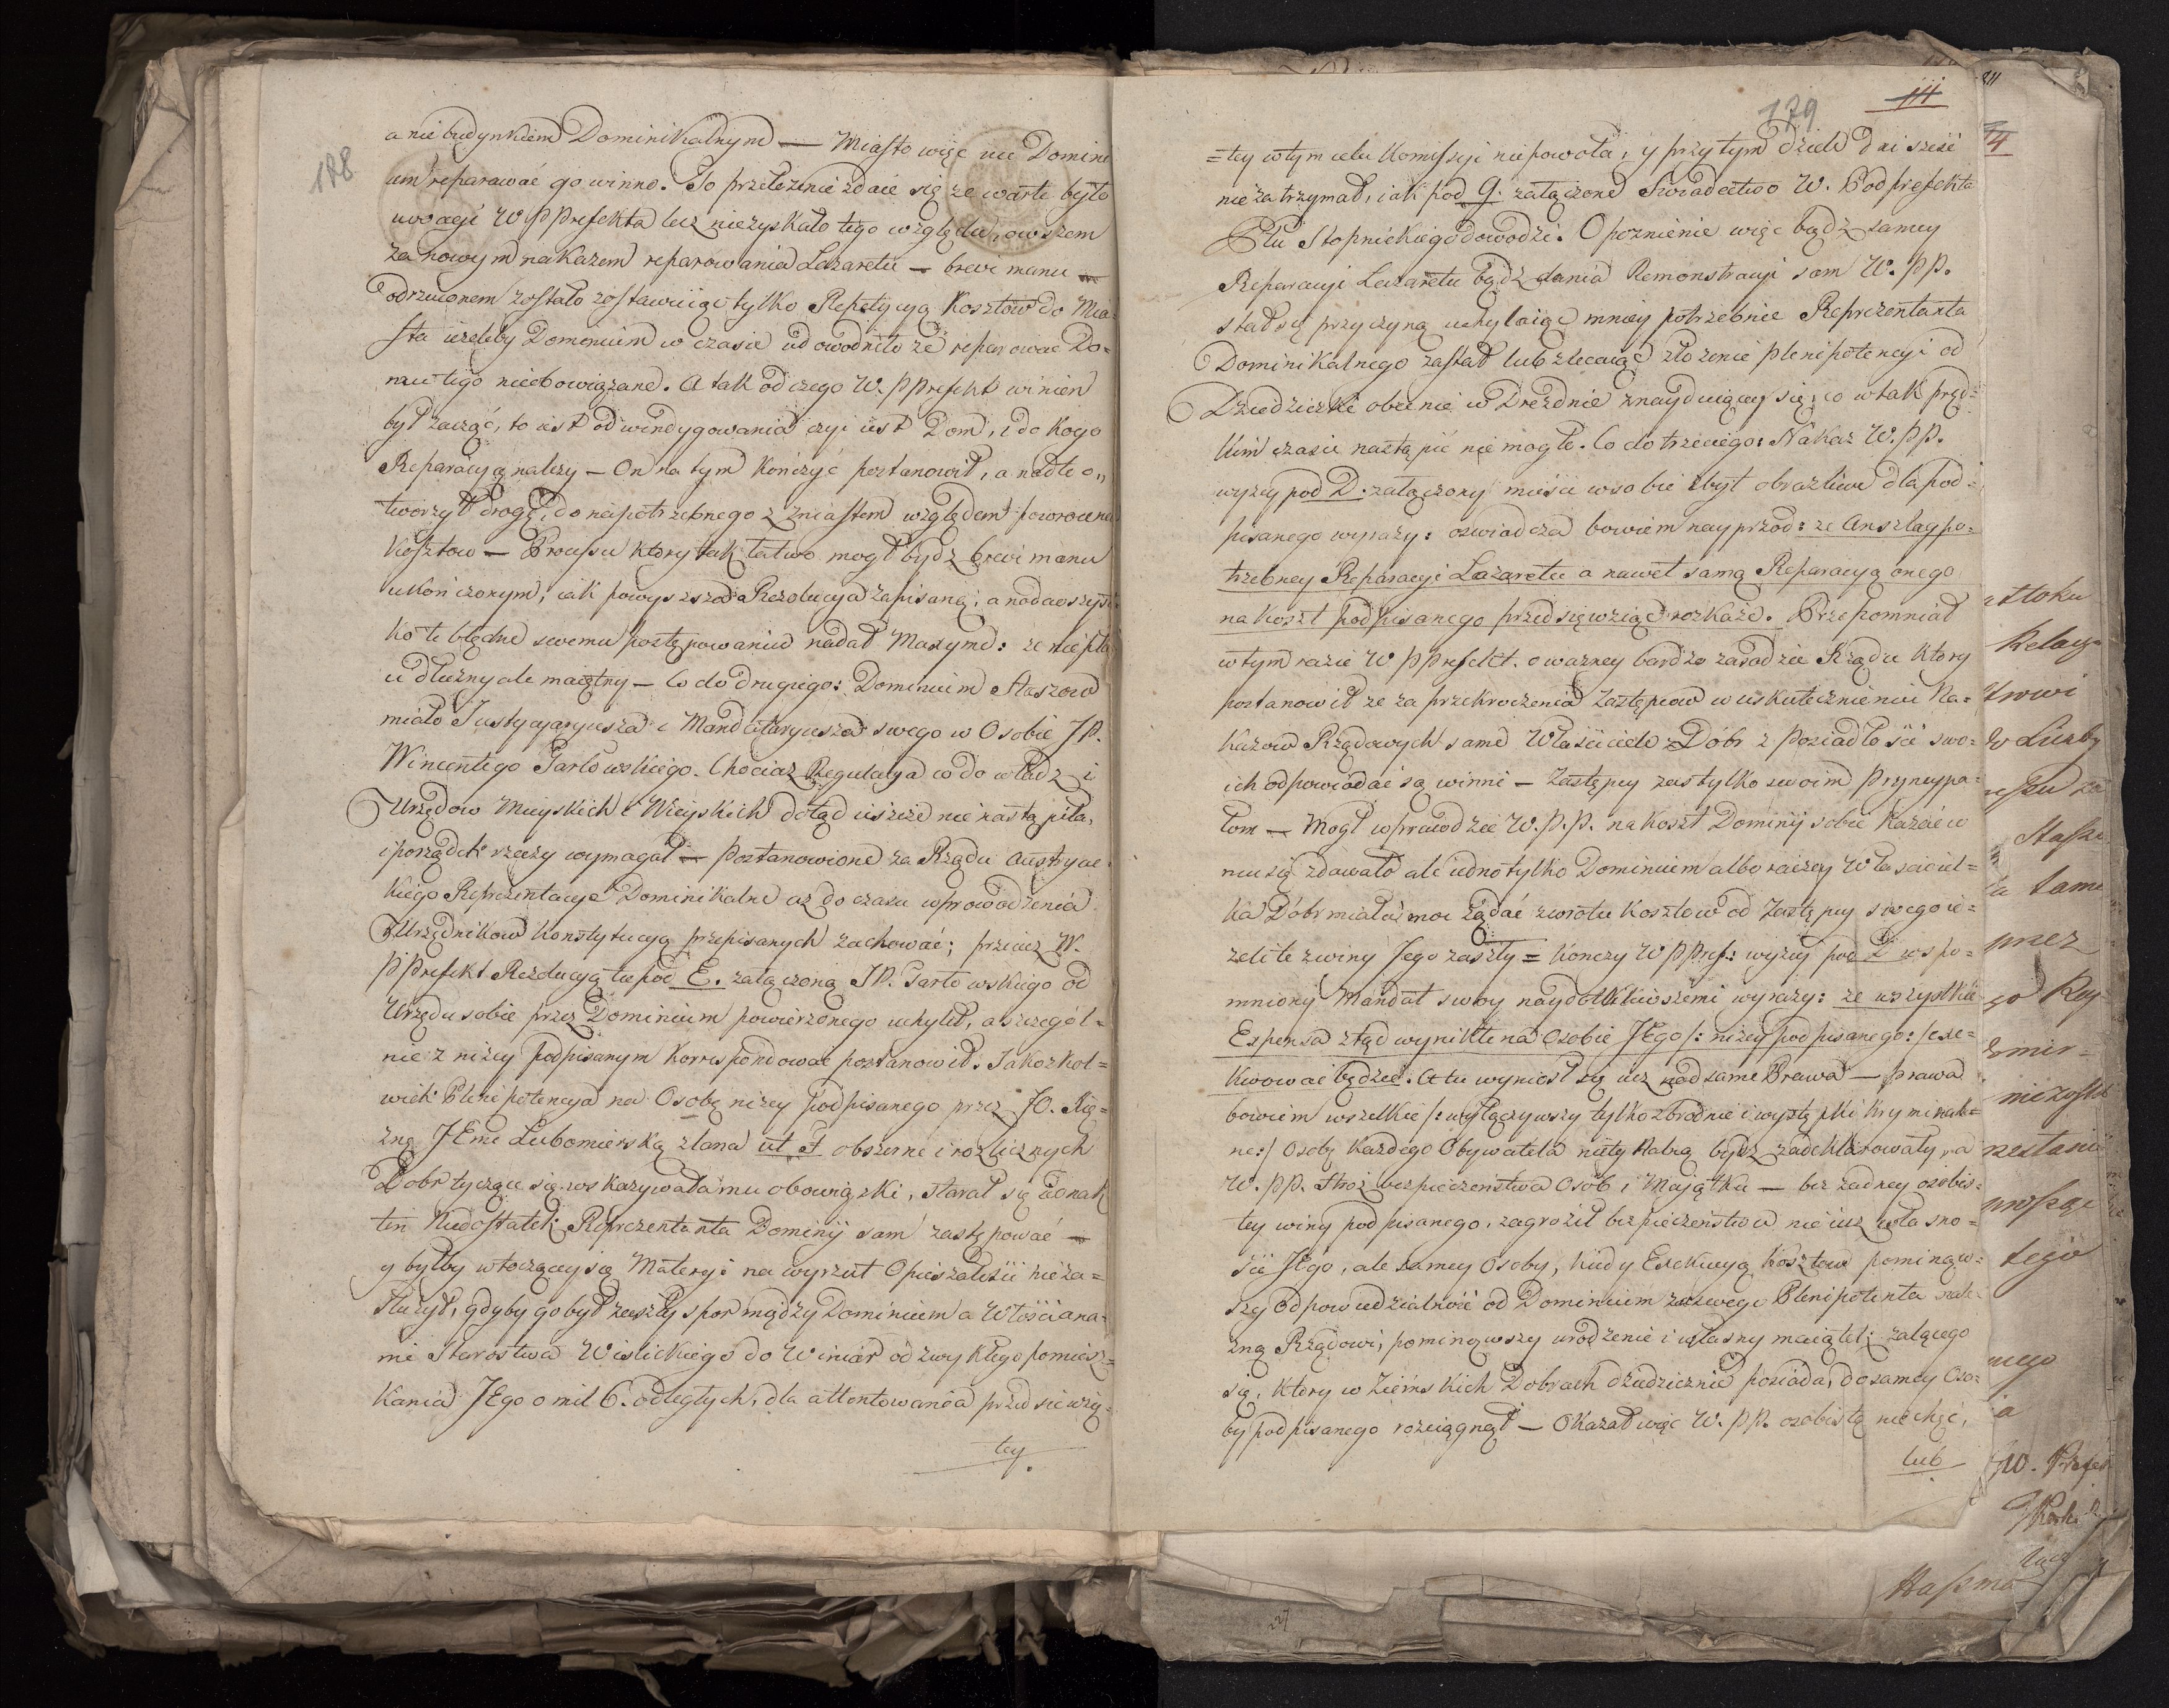 178
a nie budynkiem Dominikalnym — Miasto więc nie Domini
um reparować go winno. To przełożenie zdaie się że warte było
uwagi W PPrefekta lecz niezyskało tego względu, owszem
za nowym nakazem reparowania Lazaretu — brevi manu —
odrzuconem zostało zostawuiąc tylko Repetycyą Kosztów do Mia-
sta ieżeliby Domonium w czasie udowodniło że reparować Do-
mu tego nieobowiązane. A tak od czego W. PPrefekt winien
był zacząć, to iest od windygowania czyi iest Dom, i do kogo
Reparacyą należy — On na tym kończyć postanowił, a nadto o„
tworzył drogę, do niepotrzebnego z miastem względem powrocenia
Kosztow — Processu który tak łatwo mogł bydz brevi manu
ukończonym, iak powyższa Rezolucya zapisaną, a nadaoszys
ko te błędne swemu postępowaniu nadał Maxyme: że nie pła
ci dłużny ale maiętny — Co do drugiego: Dominium Staszow
miało Justycyaryusza i Mandataryusza swego w Osobie JP.
Wincentego Parlowskiego. Chociaż Regulacya co do władz i
Urzędow Mieyskich i Wieyskich dotąd ieszcze nie nastąpiła,
i porządek rzeczy wymagał — Postanowione za Rządu Austryac
kiego Reprezentacye Dominikalne aż do czasu wprowadzenia
Urzędnikow Konstytucyą przepisanych zachować; przecież W.
PPrefekt Rezolucyą tu pod E. załączoną JP. Parlowskiego od
Urzędu sobie przez Dominium powierzonego uchylił, a szczegól-
nie z niżey podpisanym korrespondować postanowił. Jakożkol-
wiek Plenipotencya na Osobę niżey podpisanego przez JO. Xię-
żnę JEme Lubomirską zlana ut F. obszerne i rozlicznych
Dobr tyczące się wskazywała mu obowiązki, starał się iednak
ten Niedostatek Reprezentanta Dominij sam zastępować —
y byłby w toczącey się Materyi na wyrzut Opieszałości nie za-
służył, gdyby go był zaszły spor między Dominium a Włościana-
mi Starostwa Wislickiego do Winiar od zwykłego pomiesz-
kania JEgo o mil 6. odległych, dla attentowania przedsięwzię-
tey
179
111
=tey w tym celu Komissyi niepowołał, y przy tym dziele dni sześć
nie zatrzymał, iak pod G. załączone Swiadectwo W. Podprefekta
Ptu Stopnickiego dowodzi. Opoznienie więc bądź samey
Reparacyi Lazaretu bądź dania Remonstracyi sam W. PP.
stał się przyczyną uchylaiąc mniey potrzebnie Reprezentanta
Dominikalnego zastał lub zlecaiąc złożenie plenipotencyi od
Dziedziczki obecnie w Dreżdnie znayduiącey się, co w tak pręd-
kim czasie nastąpić nie mogło. Co do trzeciego: Nakaz W. PP.
wyżey pod D. załączony mieści w sobie zbyt obraźliwe dla pod-
pisanego wyrazy: oswiadcza bowiem nayprzod: że Anszlag po-
trzebney Reparacyi Lazaretu a nawet samą Reparacyą onego
na koszt podpisanego przedsięwziąć rozkaże. Przepomniał
w tym razie W PPrefekt. o ważney bardzo zasadzie Rządu który
postanowił że za przekroczenia Zastępcow w uskutecznieniu Na-
kazow Rządowych same Właściciele Dóbr z Posiadłości swo-
ich odpowiadać są winni — Zastępcy zaś tylko swoim Pryncypa-
łom — Mogł wprawdzie W. P.P. na koszt Dominij sobie kazać co
mu się zdawało ale iedno tylko Dominium albo raczey Właściciel-
ka Dóbr miała moc żądać zwrotu kosztow od Zastępcy swego ie-
żeli te z winy Jego zaszły = Kończy W PPref: wyżey pod D wspo-
mniony Mandat swoy naydotkliwszemi wyrazy: że wszystkie
Expensa ztąd wynikłe na Osobie JEgo /: niżey podpisanego: / exe-
kwować będzie. A tu wyniosł się iuż nad same Prawa — prawa
bowiem wszelkie /: wyłączywszy tylko zbrodnie i występki kryminal-
ne:/ Osobę każdego Obywatela nietykalną bydz zadeklarowały, a
W. PP. Stroż bezpieczeństwa Osób i Majątku — bez żadney osobis-
tey winy podpisanego, zagroził bezpieczeństwu nie iuż własno-
ści JEgo, ale samey Osoby, kiedy Exekucyą kosztow pominąw-
szy odpowiedzialność od Dominium za swego Plenipotenta
żną Rządowi, pominąwszy urodzenie i własny maiątek załącego
się, który w Ziemskich Dobrach dziedzicznie posiada, do samey Oso-
by podpisanego rozciągnął — Okazał więc W. PP. osobistą niechęć,
lub
111
4
Relacy
trowi
w Liczby
Stasz
ta tame
przez
go Rey
nie zost
zestani
prosząc
tego
nego
a
JW. Prefe
27